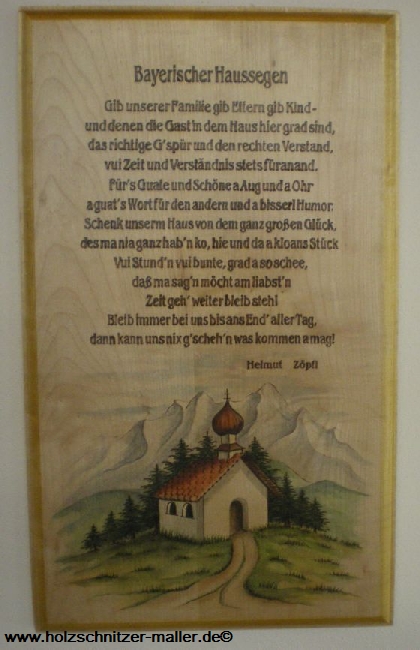 Bayerischer Haussegen
Gib unserer Familie gib Eltern gib Kind-
und denen die Gast in dem Haus hier grad sind,
das richtige G'spür und den rechten Verstand,
vui Zeit und Verständnis stets füranand.
Für's Guate und Schöne a Aug und a Ohr
a guat's Wort für den andern und a bisserl Humor.
Schenk unserm Haus von dem ganz großen Glück,
des ma nia ganz hab'n ko, hie und da a kloans Stück
Vui Stund'n vui bunte, grad a so schee,
daß ma sag'n möcht am liabst'n
Zeit geh' weiter bleib steh!
Bleib immer bei uns bis ans End' aller Tag,
dann kann uns nix g'scheh'n was kommen a mag!
Helmut Zöpfl
www.holzschnitzer-maller.de©